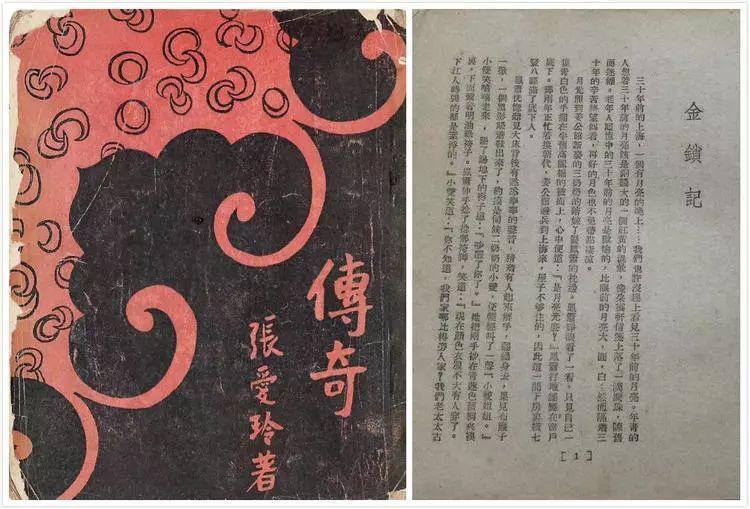 傳奇
張愛玲著
金鎖記
三十年前的上海，一個有月亮的晚上……我們也許沒趕上看見三十年前的月亮。年青的
人想着三十年前的月亮該是銅錢大的一個紅黃的濕暈，像朶雲軒信箋上落了一滴淚珠，陳舊
而迷糊。老年人回憶中的三十年前的月亮是歡愉的，比眼前的月亮大，圓，白；然而隔着三
十年的辛苦路望回看，再好的月色也不免帶點淒涼。
月光照到姜公館新娶的三奶奶的陪嫁丫鬟鳳簫的枕邊。鳳簫睜眼看了一看，只見自己一
隻青白色的手擱在半舊高麗棉的被面上，心中便道：『是月亮光麼？』鳳簫打地舖睡在窗戶
底下。那兩年正忙着換朝代，姜公館避兵到上海來，屋子不夠住的，因此這一間下房裏橫七
豎八睡滿了底下人。
鳳簫恍惚聽見大牀背後有窸窸窣窣的聲音，猜着有人起來解手，翻過身去，果見布簾子
一掀，一個黑影趿着鞋出來了，約摸是伺候二奶奶的小雙，便輕輕叫了一聲『小雙姐姐。』
小雙笑嘻嘻走來，踢了踢地下的褥子道：『吵醒了你了。』她把兩手抄在青蓮色舊綢夾襖
裏，下面繫着明油綠袴子。鳳簫伸手捻了捻那袴脚，笑道：『現在顏色衣服不大有人穿了。
下江人時興的都是素淨的。』小雙笑道：『你不知道，我們家哪比得旁人家？我們老太太古
[1]